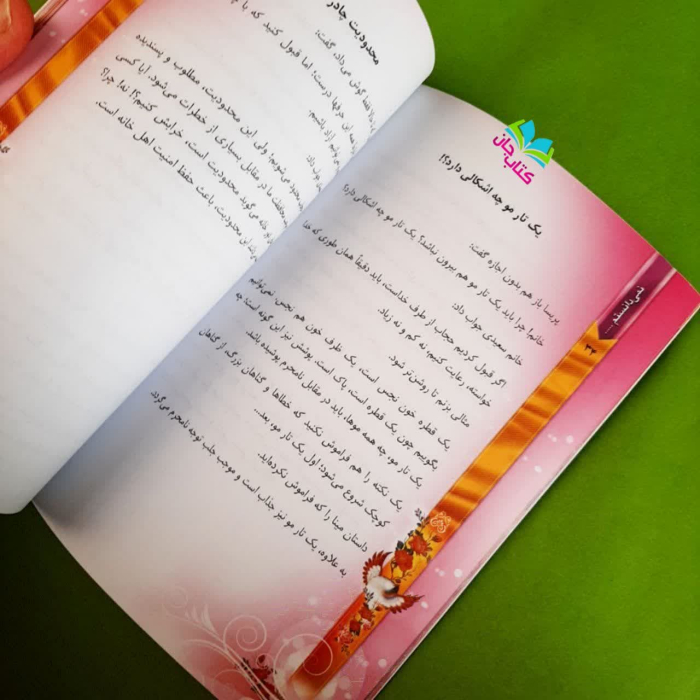 محدودیت چادر
فقط گوش می‌داد، گفت:
حرفها درست؛ اما قبول کنید که با
باشیم.
محدود می‌شویم؛ ولی این محدودیت، مطلوب و پسندیده
ما در مقابل بسیاری از خطرات می‌شود. آیا کسی
خانه می‌گوید محدودیت است، خرابش کنیم؟! نه! چرا؟
این محدودیت، باعث حفظ امنیت اهل خانه است.
کتاب جان
یک تار مو چه اشکالی دارد؟!
پریسا باز هم بدون اجازه گفت:
خانم! چرا باید یک تار مو هم بیرون نباشد؟ یک تار مو چه اشکالی دارد؟
خانم سعیدی جواب داد:
اگر قبول کردیم حجاب از طرف خداست، باید دقیقاً همان طوری که خدا
خواسته، رعایت کنیم؛ نه کم و نه زیاد.
مثالی بزنم تا روشن‌تر شود.
یک قطره خون نجس است، یک ظرف خون هم نجس. نمی‌توانیم
بگوییم چون یک قطره است، پاک است. پوشش نیز این گونه است؛ چه
یک تار مو، چه همه موها، باید در مقابل نامحرم پوشیده باشد.
یک نکته را هم فراموش نکنید که خطاها و گناهان بزرگ، از گناهان
کوچک شروع می‌شود؛ اول یک تار مو، بعد...
داستان مینا را که فراموش نکرده‌اید.
به علاوه، یک تار مو نیز جذاب است و موجب جلب توجه نامحرم می‌گردد
نمی‌دانستم ...
۳۲